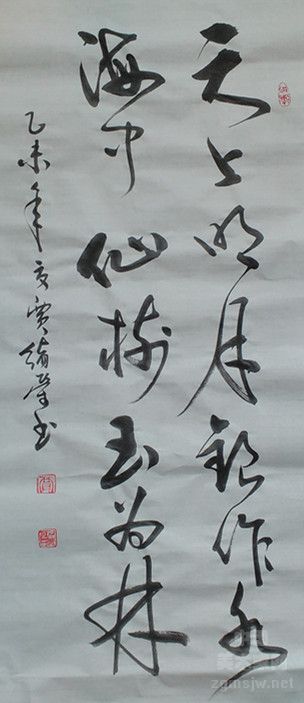 天上明月银作水
海中仙树玉为林
乙未年夏贾书
zgmsjw.net